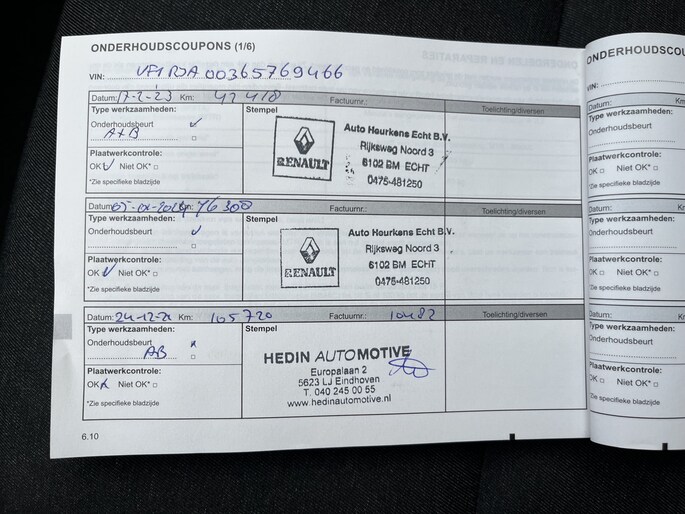 ONDERHOUDSCOUPONS (1/6)
VIN: VF1RJA00365769466
Datum: 17-2-23 Km: 41418 Factuurnr.: Toelichting/diversen
Type werkzaamheden: Stempel
Onderhoudsbeurt ✓
A+B
Plaatwerkcontrole:
OK ✓ Niet OK* □
*Zie specifieke bladzijde
RENAULT
Auto Heurkens Echt B.V.
Rijksweg Noord 3
6102 BM ECHT
0475-481250
Datum: Km: 76300 Factuurnr.: Toelichting/diversen
Type werkzaamheden: Stempel
Onderhoudsbeurt ✓
Plaatwerkcontrole:
OK ✓ Niet OK* □
*Zie specifieke bladzijde
RENAULT
Auto Heurkens Echt B.V.
Rijksweg Noord 3
6102 BM ECHT
0475-481250
Datum: 24-12-24 Km: 105720 Factuurnr.: 10482 Toelichting/diversen
Type werkzaamheden: Stempel
Onderhoudsbeurt x
AB □
Plaatwerkcontrole:
OK x Niet OK* □
*Zie specifieke bladzijde
HEDIN AUTOMOTIVE
Europalaan 2
5623 LJ Eindhoven
T. 040 245 00 55
www.hedinautomotive.nl
6.10
ONDERHOUDSCOU
VIN:
Datum: Km:
Type werkzaamheden:
Onderhoudsbeurt
Plaatwerkcontrole:
OK □ Niet OK* □
*Zie specifieke bladzijde
Datum: Km:
Type werkzaamheden:
Onderhoudsbeurt
Plaatwerkcontrole:
OK □ Niet OK* □
*Zie specifieke bladzijde
Datum: Km:
Type werkzaamheden:
Onderhoudsbeurt
Plaatwerkcontrole:
OK □ Niet OK* □
*Zie specifieke bladzijde